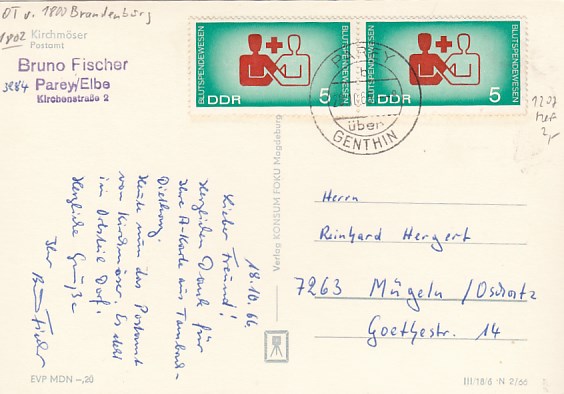 OT v. 1800 Brandenburg
1802 Kirchmöser
Postamt
Bruno Fischer
3284 Parey/Elbe
Kirchenstraße 2
BLUTSPENDEWESEN
DDR 5
BLUTSPENDEWESEN
BLUTSPENDEWESEN
DDR 5
BLUTSPENDEWESEN
PAREY
über
GENTHIN
1207
MeF
2,-
18.10.66
Lieber Freund!
Herzlichen Dank für
Ihre A-Karte aus
Heute nun das Postamt
von Kirchmöser. Es steht
im Ortsteil Dorf.
Herzliche Grüße
Ihr Bruno Fischer
Verlag KONSUM FOKU Magdeburg
Herrn
Reinhard Hergert
7263 Mügeln/Oschatz
Goethestr. 14
EVP MDN -,20
III/18/6 N 2/66